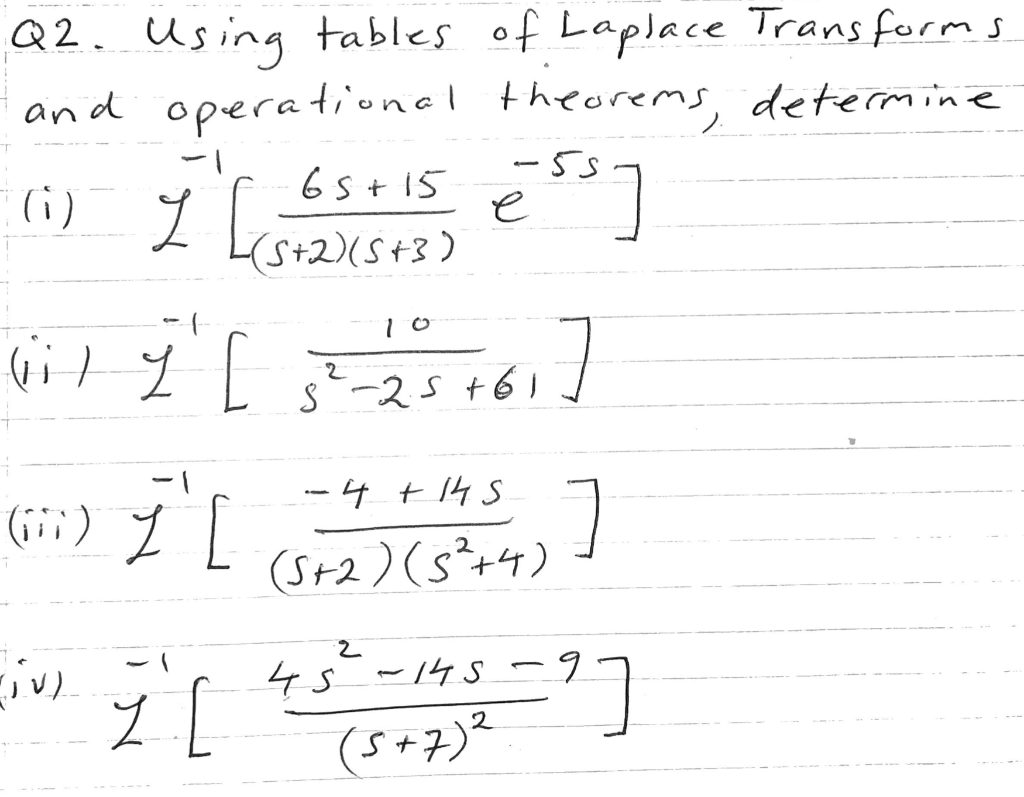 Q2. Using tables of Laplace Transforms
and operational theorems, determine
(i) ℒ⁻¹[ (6s + 15)/((s+2)(s+3)) e^(-5s) ]
(ii) ℒ⁻¹[ 10/(s² - 2s + 61) ]
(iii) ℒ⁻¹[ (-4 + 14s)/((s+2)(s²+4)) ]
(iv) ℒ⁻¹[ (4s² - 14s - 9)/((s+7)²) ]